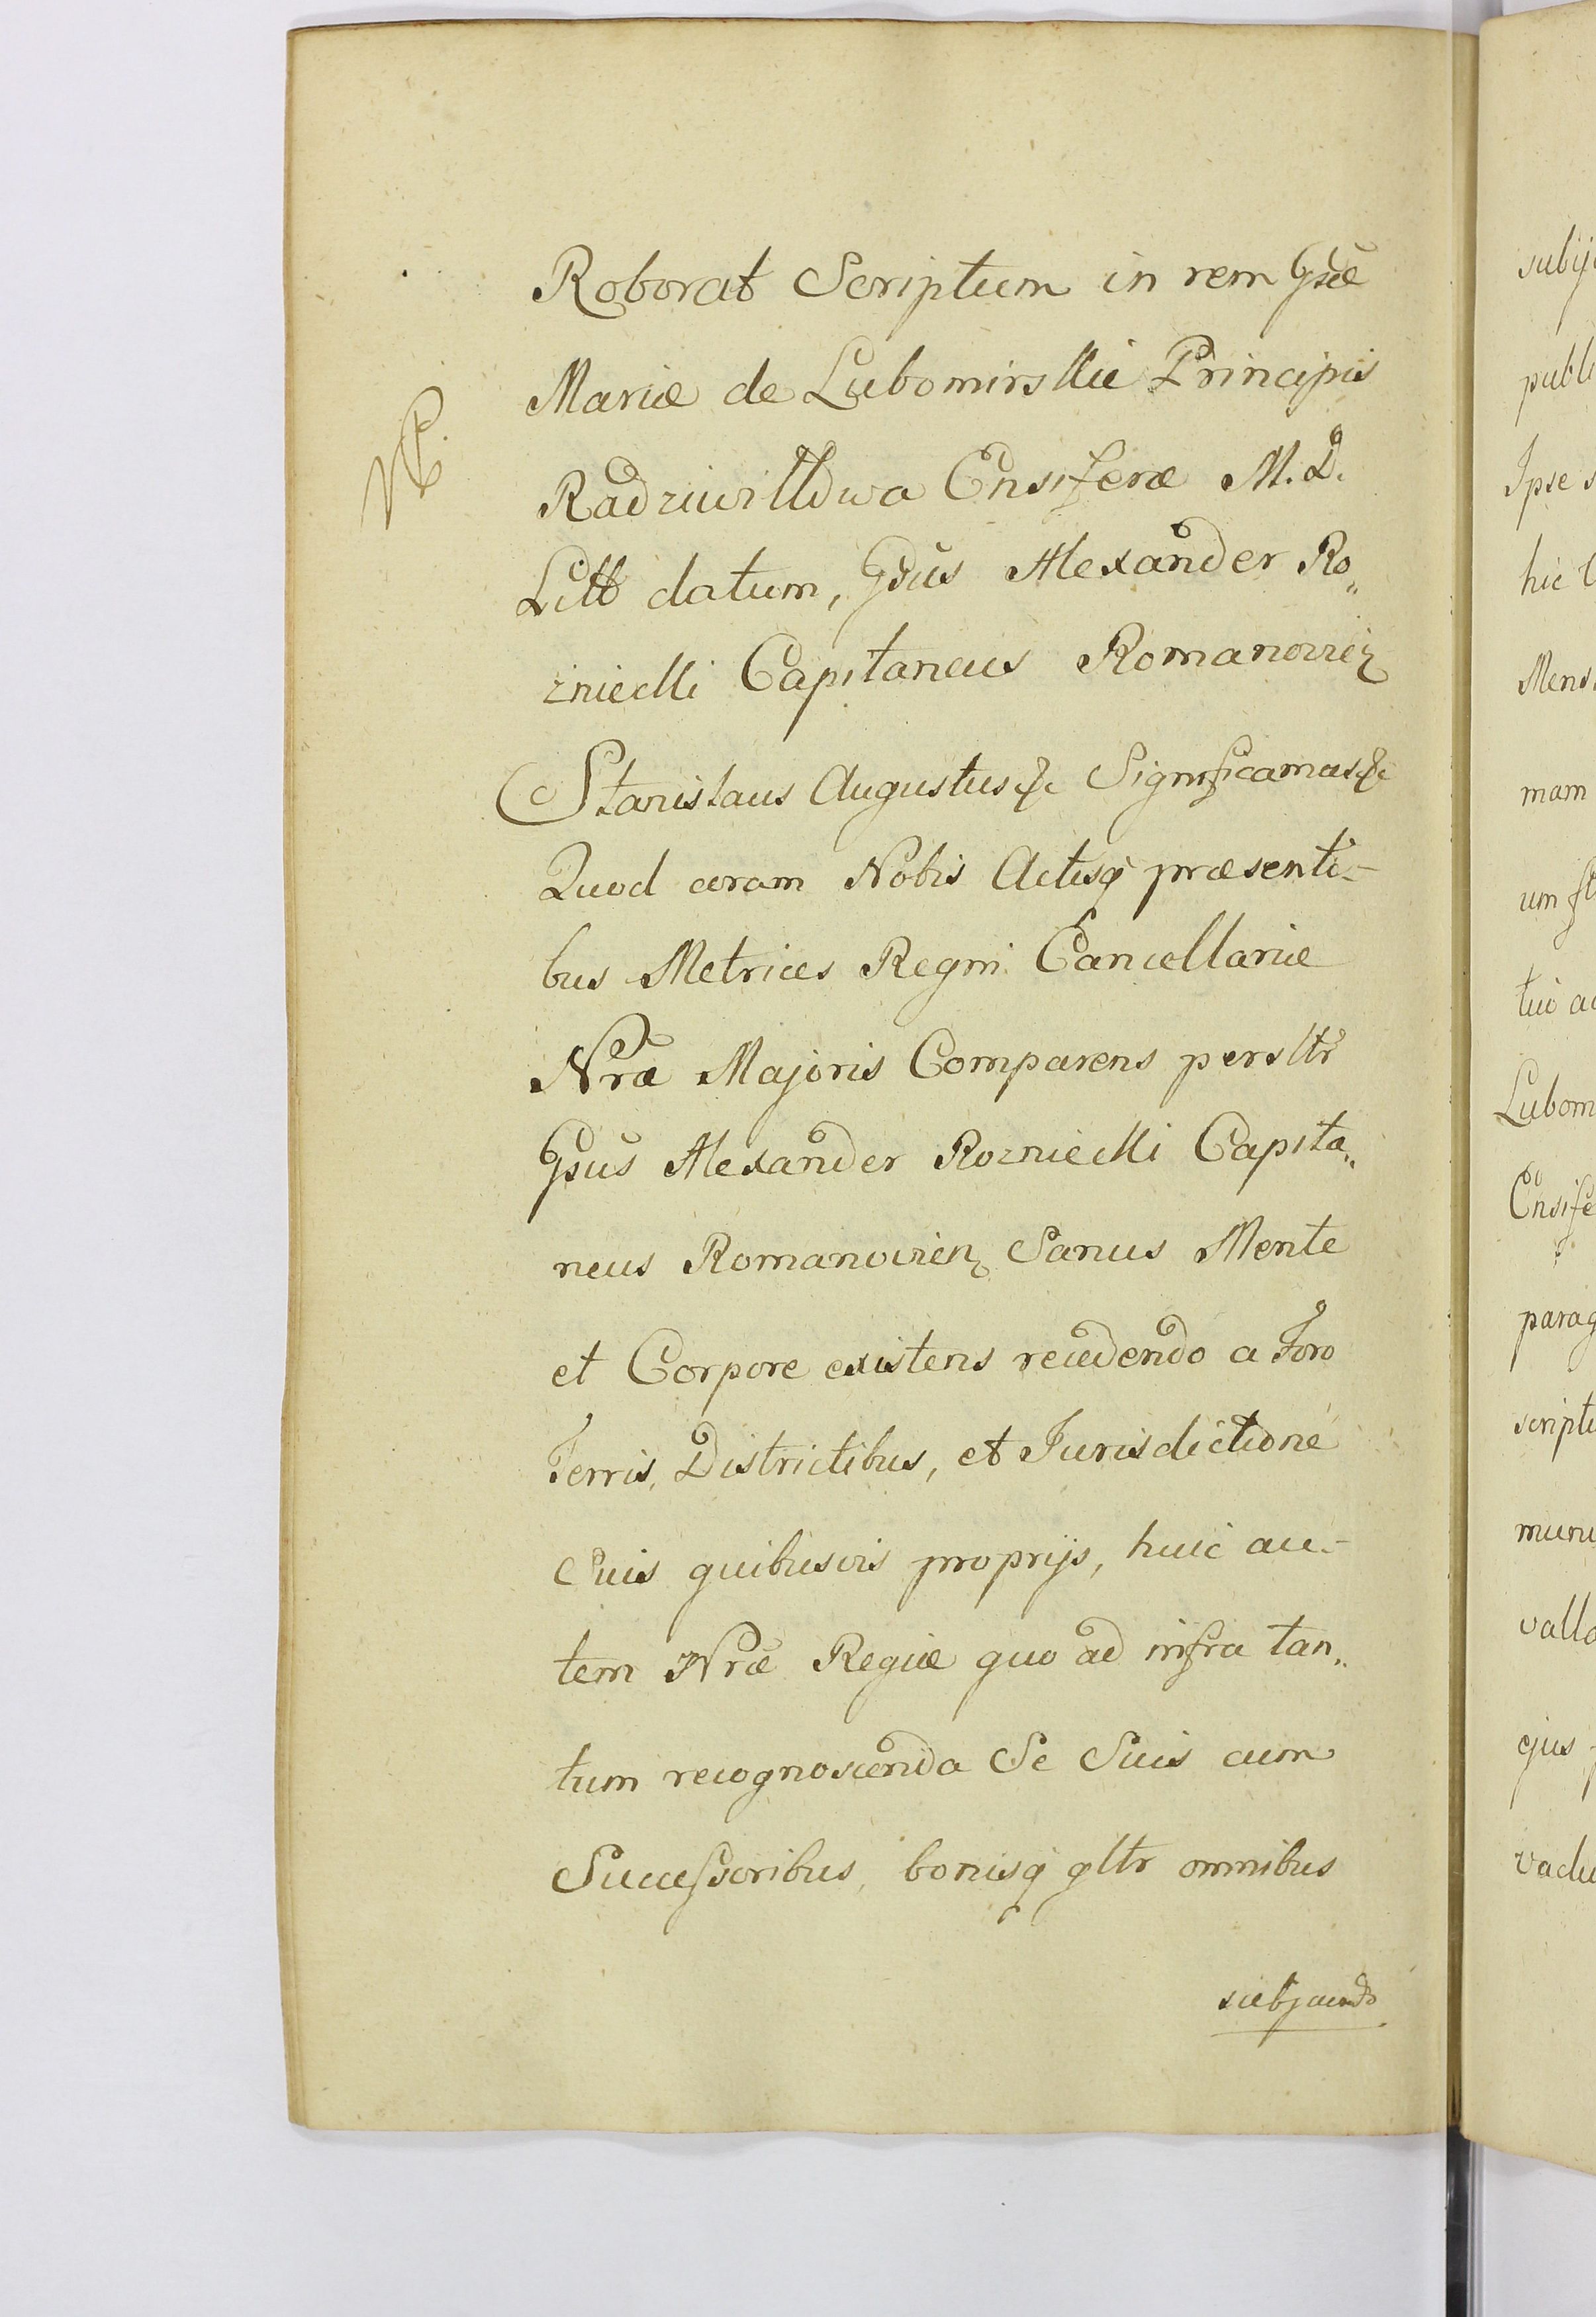 Roborat Scriptum in rem Gsæ
Mariæ de Lubomirskie Principis
Radziwiłłowa Ensiferæ M. D.
Litt datum, Gsus Alexander Ro„
zniecki Capitaneus Romanovien
Stanislaus Augustus &c Significamus &c
Quod coram Nobis Actisq præsenti-
bus Metrices Regni Cancellariæ
Nræ Majoris Comparens persltr
Gsus Alexander Rozniecki Capita„
neus Romanovien Sanus Mente
et Corpore existens recedendo a Foro
Terris, Districtibus, et Jurisdictione
Suis quibusvis proprijs, huic au-
tem Nræ Regiæ quo ad infra tan„
tum recognoscenda Se Suis cum
Successoribus, bonisq gltr omnibus
subjaciendo
subij
publi
Ipse s
hic
Mens
mam
um
tuo ac
Lubom
Ensife
parag
scriptu
munu
valla
ejus
vadu